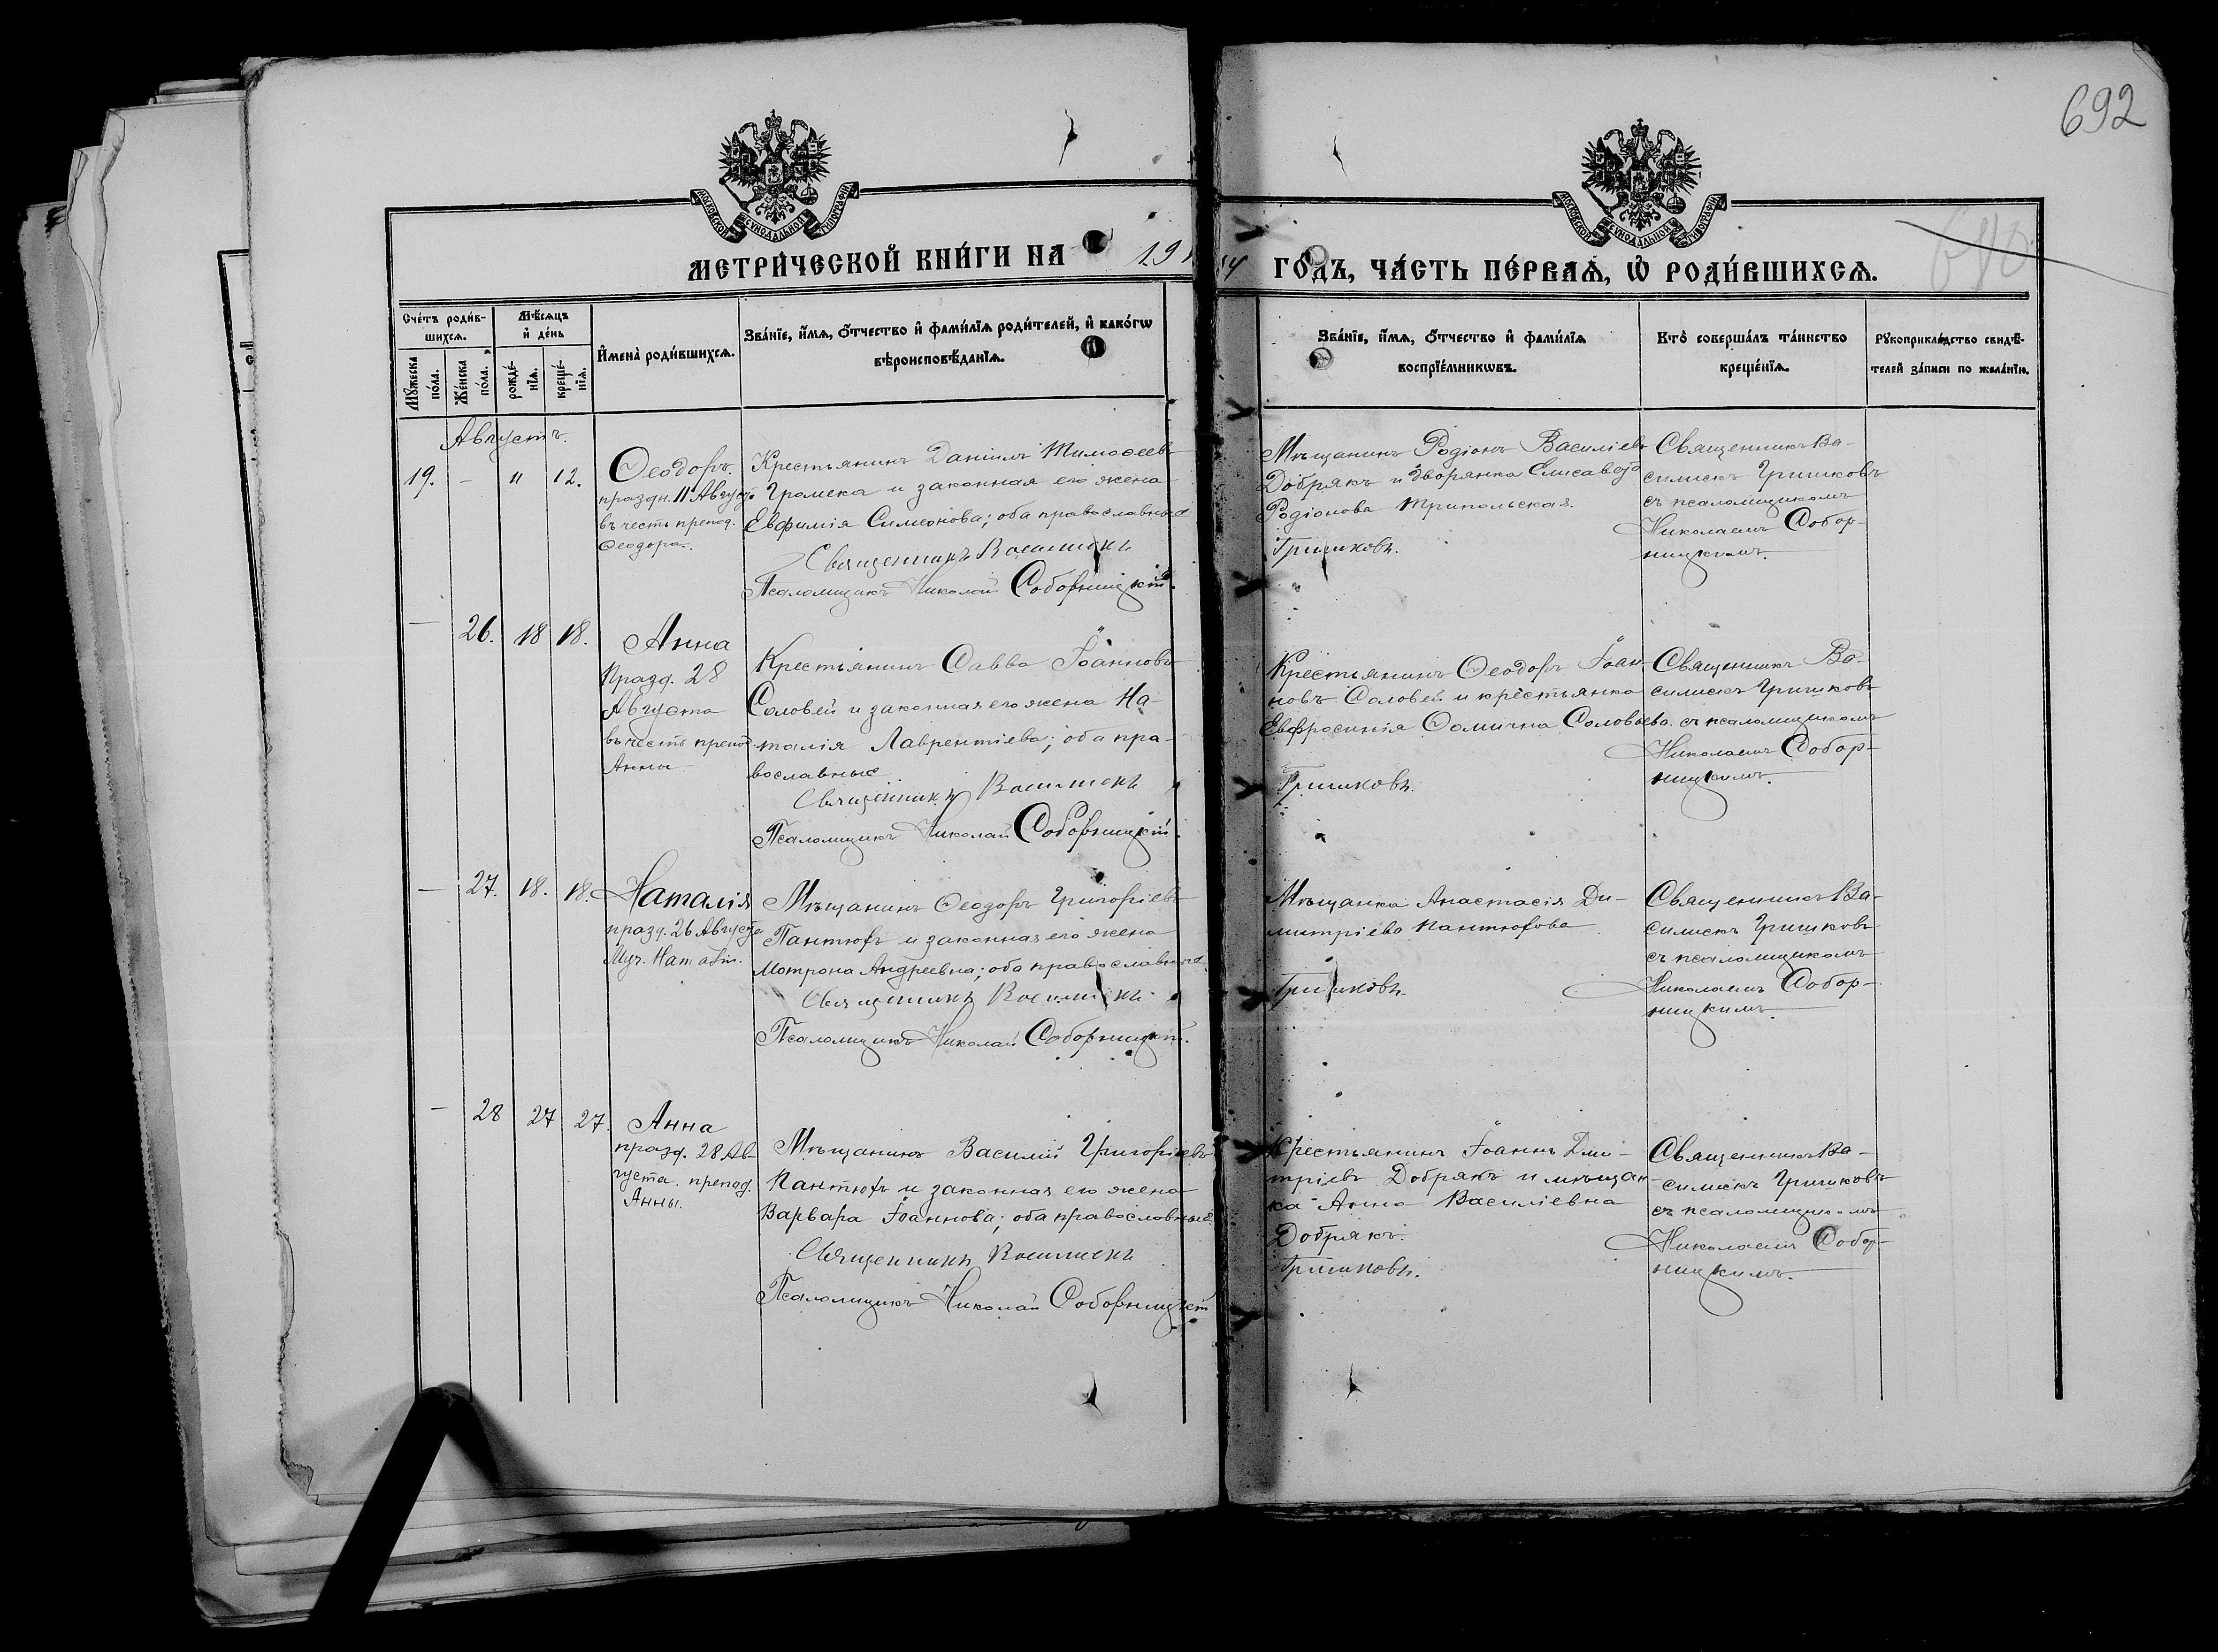 692
МОСКОВСКОЙ СѴНОДАЛЬНОЙ ТИПОГРАФІИ
МОСКОВСКОЙ СѴНОДАЛЬНОЙ ТИПОГРАФІИ
МЕТРИ́ЧЕСКОЙ КНИ́ГИ НА 1914 ГО́ДЪ, ЧА́СТЬ ПЕ́РВАѦ, Ѡ҆ РОДИ́ВШИХСѦ.
Сче́тъ роди́в-
шихсѧ.
Мꙋ́жеска по́ла.
Же́нска по́ла.
Мѣ́сѧцъ
и҆ де́нь
рожде́-нїѧ.
креще́-нїѧ.
И҆мена̀ роди́вшихсѧ.
Зва́нїе, и҆́мѧ, ѻ҆́тчество и҆ фами́лїѧ роди́телей, и҆ како́гѡ
вѣроисповѣ́данїѧ.
Зва́нїе, и҆́мѧ, ѻ҆́тчество и҆ фами́лїѧ
воспрїе́мникѡвъ.
Кто̀ соверша́лъ та́инство
креще́нїѧ.
Рꙋкоприкла́дство свидѣ́-
телей за́писи по жела́нїю.
Августъ.
19.
-
11
12.
Ѳеодоръ.
праздн. 11 Август.
въ честь препод.
Ѳеодора.
Крестьянинъ Даніилъ Тимоѳеевъ
Громека и законная его жена
Евфимія Симеонова; оба православные
Священникъ Василискъ
Псаломщикъ Николай Соборницкій.
Мѣщанинъ Родіонъ Василіевъ
Добрякъ и дворянка Елисавета
Родіонова Трипольская.
Гришковъ.
Священникъ Ва-
силискъ Гришковъ
съ псаломщикомъ
Николаемъ Собор-
ницкимъ.
-
26.
18
18.
Анна
Празд. 28
Августа
въ честь препод.
Анны
Крестьянинъ Савва Іоанновъ
Соловей и законная его жена На-
талія Лаврентіева; оба пра-
вославные
Священникъ Василискъ
Псаломщикъ Николай Соборницкій.
Крестьянинъ Ѳеодоръ Іоан-
новъ Соловей и крестьянка
Евфросинія Ѳомична Соловьева.
Гришковъ.
Священникъ Ва-
силискъ Гришковъ
съ псаломщикомъ
Николаемъ Собор-
ницкимъ.
-
27.
18.
18.
Наталія
празд. 26 Августа
Муч. Наталіи.
Мѣщанинъ Ѳеодоръ Григоріевъ
Пантюхъ и законная его жена
Мотрона Андреевна; оба православные
Священникъ Василискъ
Псаломщикъ Николай Соборницкій.
Мѣщанка Анастасія Ди-
митріева Пантюхова
Гришковъ.
Священникъ Ва-
силискъ Гришковъ
съ псаломщикомъ
Николаемъ Собор-
ницкимъ.
-
28
27
27.
Анна
празд. 28 Ав-
густа. препод.
Анны.
Мѣщанинъ Василій Григоріевъ
Пантюхъ и законная его жена
Варвара Іоаннова; оба православные.
Священникъ Василискъ
Псаломщикъ Николай Соборницкій
Крестьянинъ Іоаннъ Дми-
тріевъ Добрякъ и мѣщан-
ка Анна Василіевна
Добрякъ.
Гришковъ.
Священникъ Ва-
силискъ Гришковъ
съ псаломщикомъ
Николаемъ Собор-
ницкимъ.